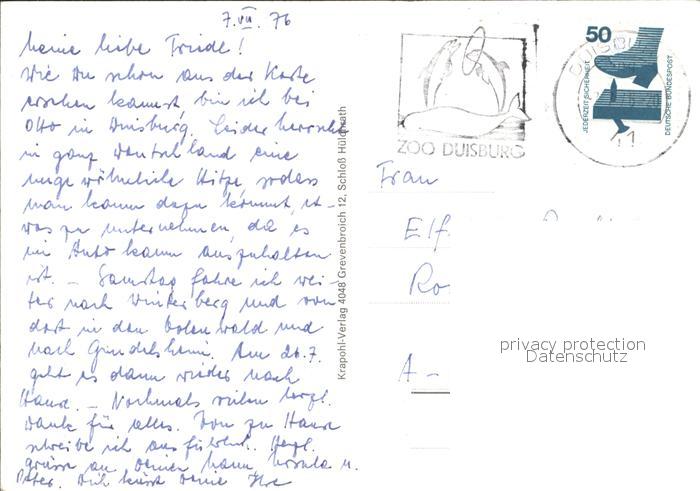 7. VII. 76
Meine liebe Friedel!
Wie Du schon aus der Karte
ersehen kannst, bin ich bei
Otto in Duisburg. Leider herrscht
in ganz Deutschland eine
ungewöhnliche Hitze, sodass
man kaum dazu kommt, et-
was zu unternehmen, da es
im Auto kaum auszuhalten
ist. – Samstag fahre ich wei-
ter nach Winterberg und von
dort in den Odenwald und
nach Gundelsheim. Am 26.7.
geht es dann wieder nach
Hause. – Nochmals vielen herzl.
Dank für alles. Von zu Hause
schreibe ich ausführl. Herzl.
Grüsse an Deinen Mann, Ursula u.
Peter. Dich küsst Deine Ilse
Krapohl-Verlag 4048 Grevenbroich 12, Schloß Hülchrath
ZOO DUISBURG
50
JEDERZEIT SICHERHEIT
DEUTSCHE BUNDESPOST
DUISBU
11
Frau
Elf
Ro
A –
privacy protection
Datenschutz